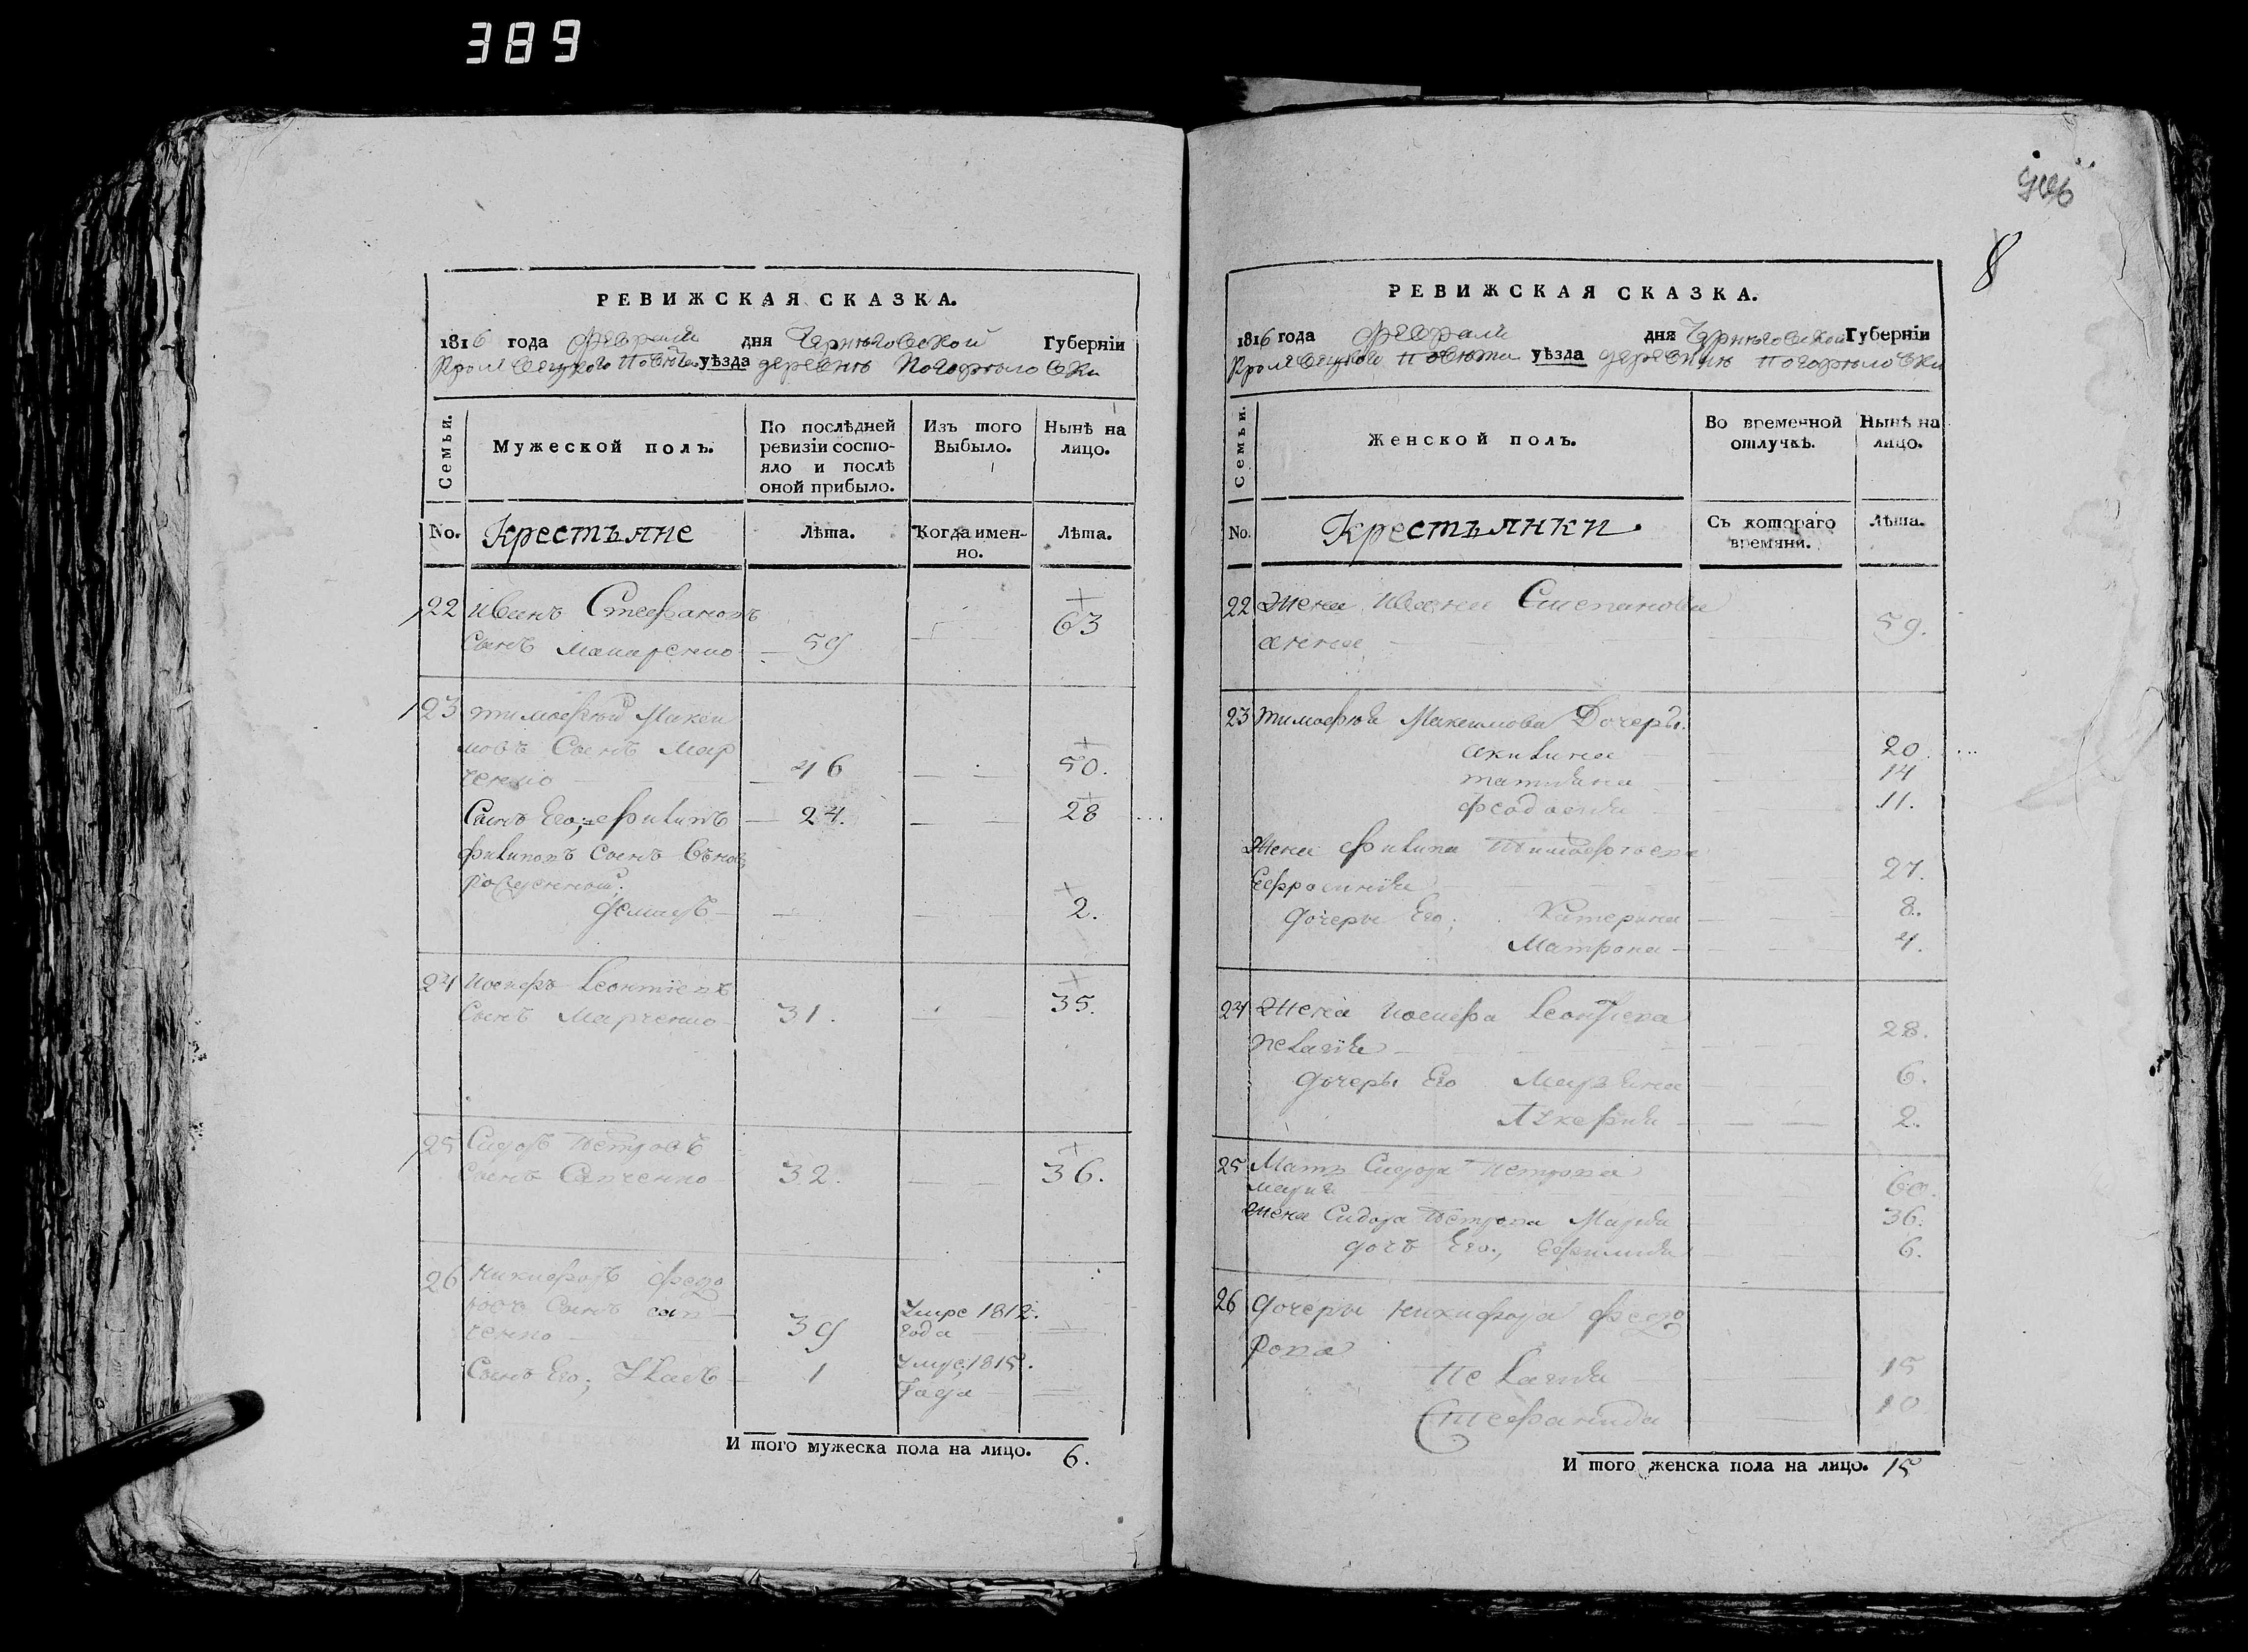 389
8
РЕВИЖСКАЯ СКАЗКА.
1816 года февраля дня Черниговской Губернiи
Кролевецкого Повѣта уѣзда деревнѣ Погорѣловки
Семьи.
Мужеской полъ.
По послѣдней ревизiи состояло и послѣ оной прибыло.
Изъ того Выбыло.
Нынѣ на лицо.
No. Крестъяне
Лѣта.
Когда именно.
Лѣта.
22 Иванъ Стефановъ 63
Сынъ 59
23 Тимофѣй Макси
мовъ Сынъ Мар
ченко 46 50.
Сынъ Его; Филипъ 24. 28
Филиповъ Сынъ
рожденной;
2.
24 Иосифъ Леонтiевъ
Сынъ Марченко 31. 35.
25 Сидоръ Петровъ
Сынъ Савченко 32. 36.
26 Никифоръ Федо
ровъ Сынъ Сав
ченко 39 Умре 1812. года
Сынъ Его; 1 Умре 1815. Года
И того мужеска пола на лицо. 6.
РЕВИЖСКАЯ СКАЗКА.
1816 года февраля дня Черниговской Губернiи
Кролевецкого Повѣта уѣзда деревнѣ Погорѣловки
Семьи.
Женской полъ.
Во временной отлучкѣ.
Нынѣ на лицо.
No. Крестъянки.
Съ котораго времяни.
Лѣта.
22 Жена Ивана Степанова
анна 59.
23 Тимофѣя Максимова Дочеры.
акилина 20
татiяна 14
феодосiя 11.
Жена Филипа Тимофѣева
Ефросинiя 27.
дочеры Его; Катерина 8.
Матрона 4.
24 Жена Иосифа Леонтiева
Пелагiя 28.
дочеры Его 6.
2.
25 Мать Сидора Петрова
60.
жена Сидора Петрова Марiя 36.
дочь Его; Ефимiя 6.
26 дочеры Никифора Федо
рова
Пелагiя 15
Стефанида 10
И того женска пола на лицо. 15